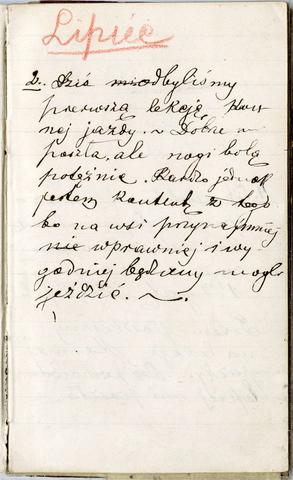 Lipiec
2. Dziś miodbyliśmy
pierwszą lekcję kon-
nej jazdy. ~ Dobrze
poszła, ale nogi bolą
potężnie. Bardzo jednak
jestem kontent, z
bo na wsi przynajmniej
nie wprawniej i wy-
godniej będziemy mogli
jeździć. ~.